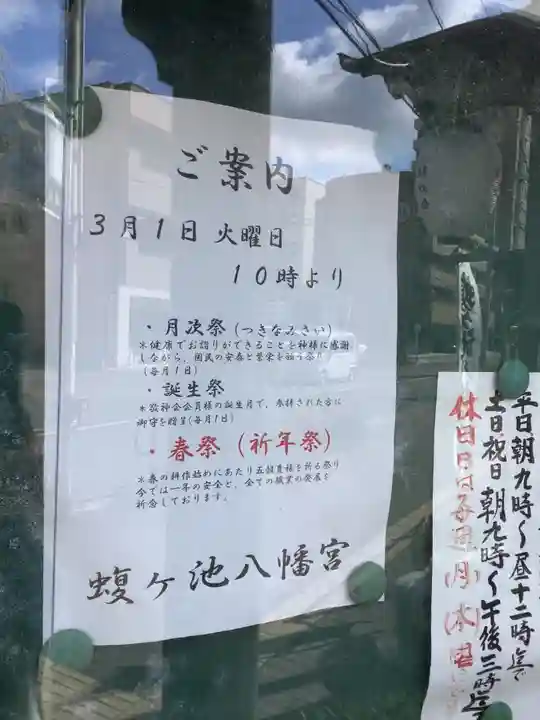 ご案内
3月1日 火曜日
10時より
・月次祭(つきなみさい)
＊健康でお詣りができることを神様に感謝
しながら、国民の安泰と繁栄を祈る祭り
(毎月1日)
・誕生祭
＊敬神会会員様の誕生月で、参拝された方に
御守を贈呈(毎月1日)
・春祭(祈年祭)
＊春の耕作始めにあたり五穀豊穣を祈る祭り
今では一年の安全と、全ての職業の発展を
祈念しております。
蝮ヶ池八幡宮
平日朝九時〜昼十二時迄
土日祝日 朝九時〜午後三時迄
休日日は毎週(月)(木)曜